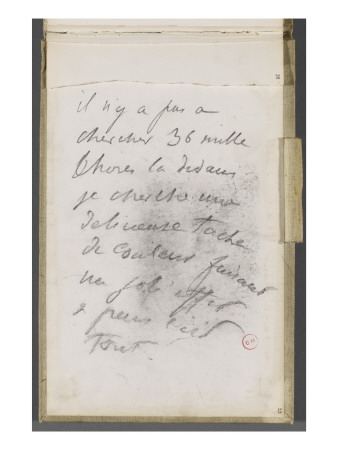 il n'y a pas a
chercher 36 mille
choses la dedans
je cherche une
delicieuse tache
de couleur faisant
un joli effet
& puis c'est
tout.